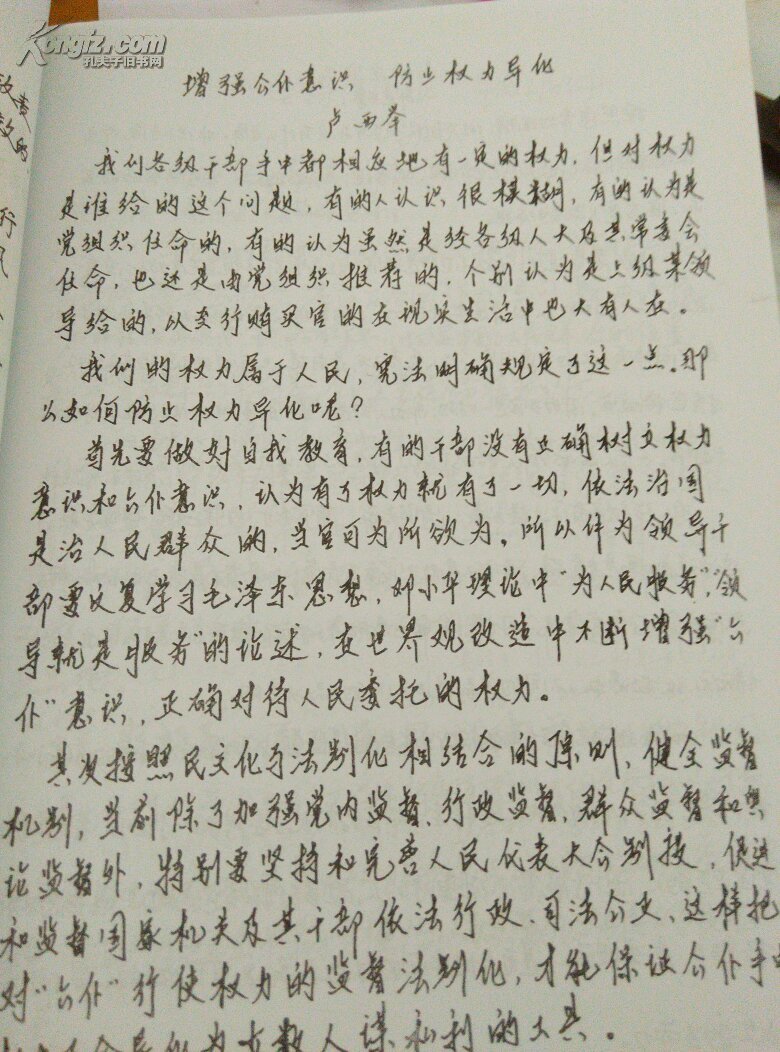 Kongfz.com
孔夫子旧书网
增强公仆意识 防止权力异化
卢西举
我们各级干部手中都相应地有一定的权力，但对权力
是谁给的这个问题，有的人认识很模糊，有的认为是
党组织任命的，有的认为虽然是经各级人大及其常委会
任命，也还是由党组织推荐的，个别认为是上级某领
导给的，以至行贿买官的在现实生活中也大有人在。
我们的权力属于人民，宪法明确规定了这一点。那
么如何防止权力异化呢？
首先要做好自我教育，有的干部没有正确树立权力
意识和公仆意识，认为有了权力就有了一切，依法治国
是治人民群众的，当官可为所欲为。所以作为领导干
部要反复学习毛泽东思想，邓小平理论中“为人民服务”，“领
导就是服务”的论述，在世界观改造中不断增强“公
仆”意识，正确对待人民委托的权力。
其次按照民主化与法制化相结合的原则，健全监督
机制，当前除了加强党内监督、行政监督、群众监督和舆
论监督外，特别要坚持和完善人民代表大会制度，促进
和监督国家机关及其干部依法行政、司法公正、这样把
对“公仆”行使权力的监督法制化，才能保证公仆手中
异化为少数人谋私利的工具。